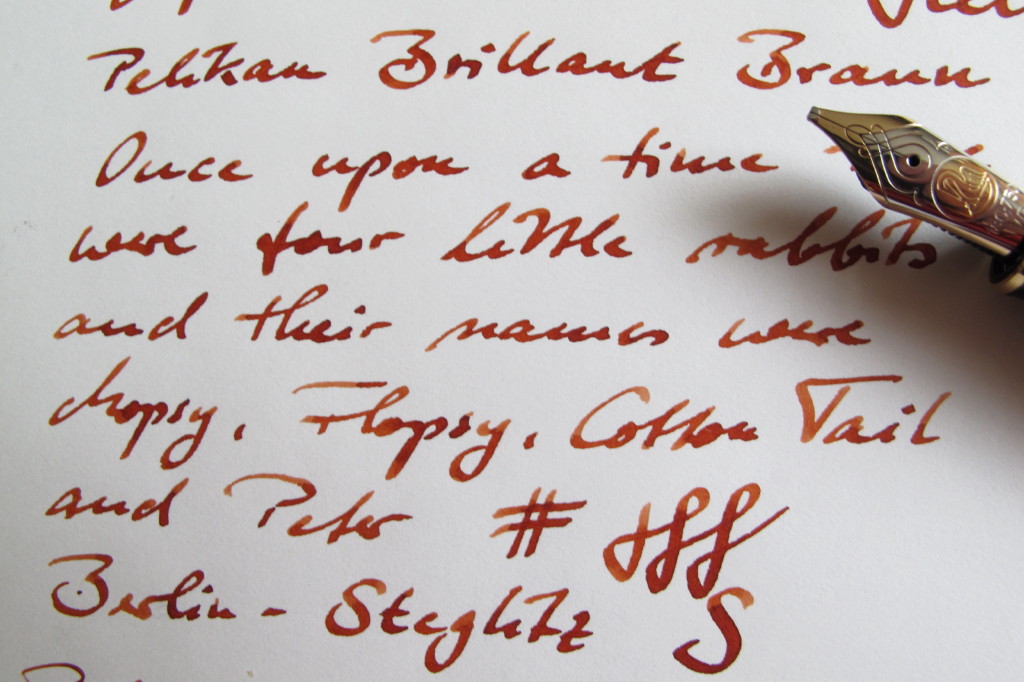 Pelikan Brillant Braun
Once upon a time
were four little rabbits
and their names were
Mopsy, Flopsy, Cotton Tail
and Peter #
Berlin - Steglitz S